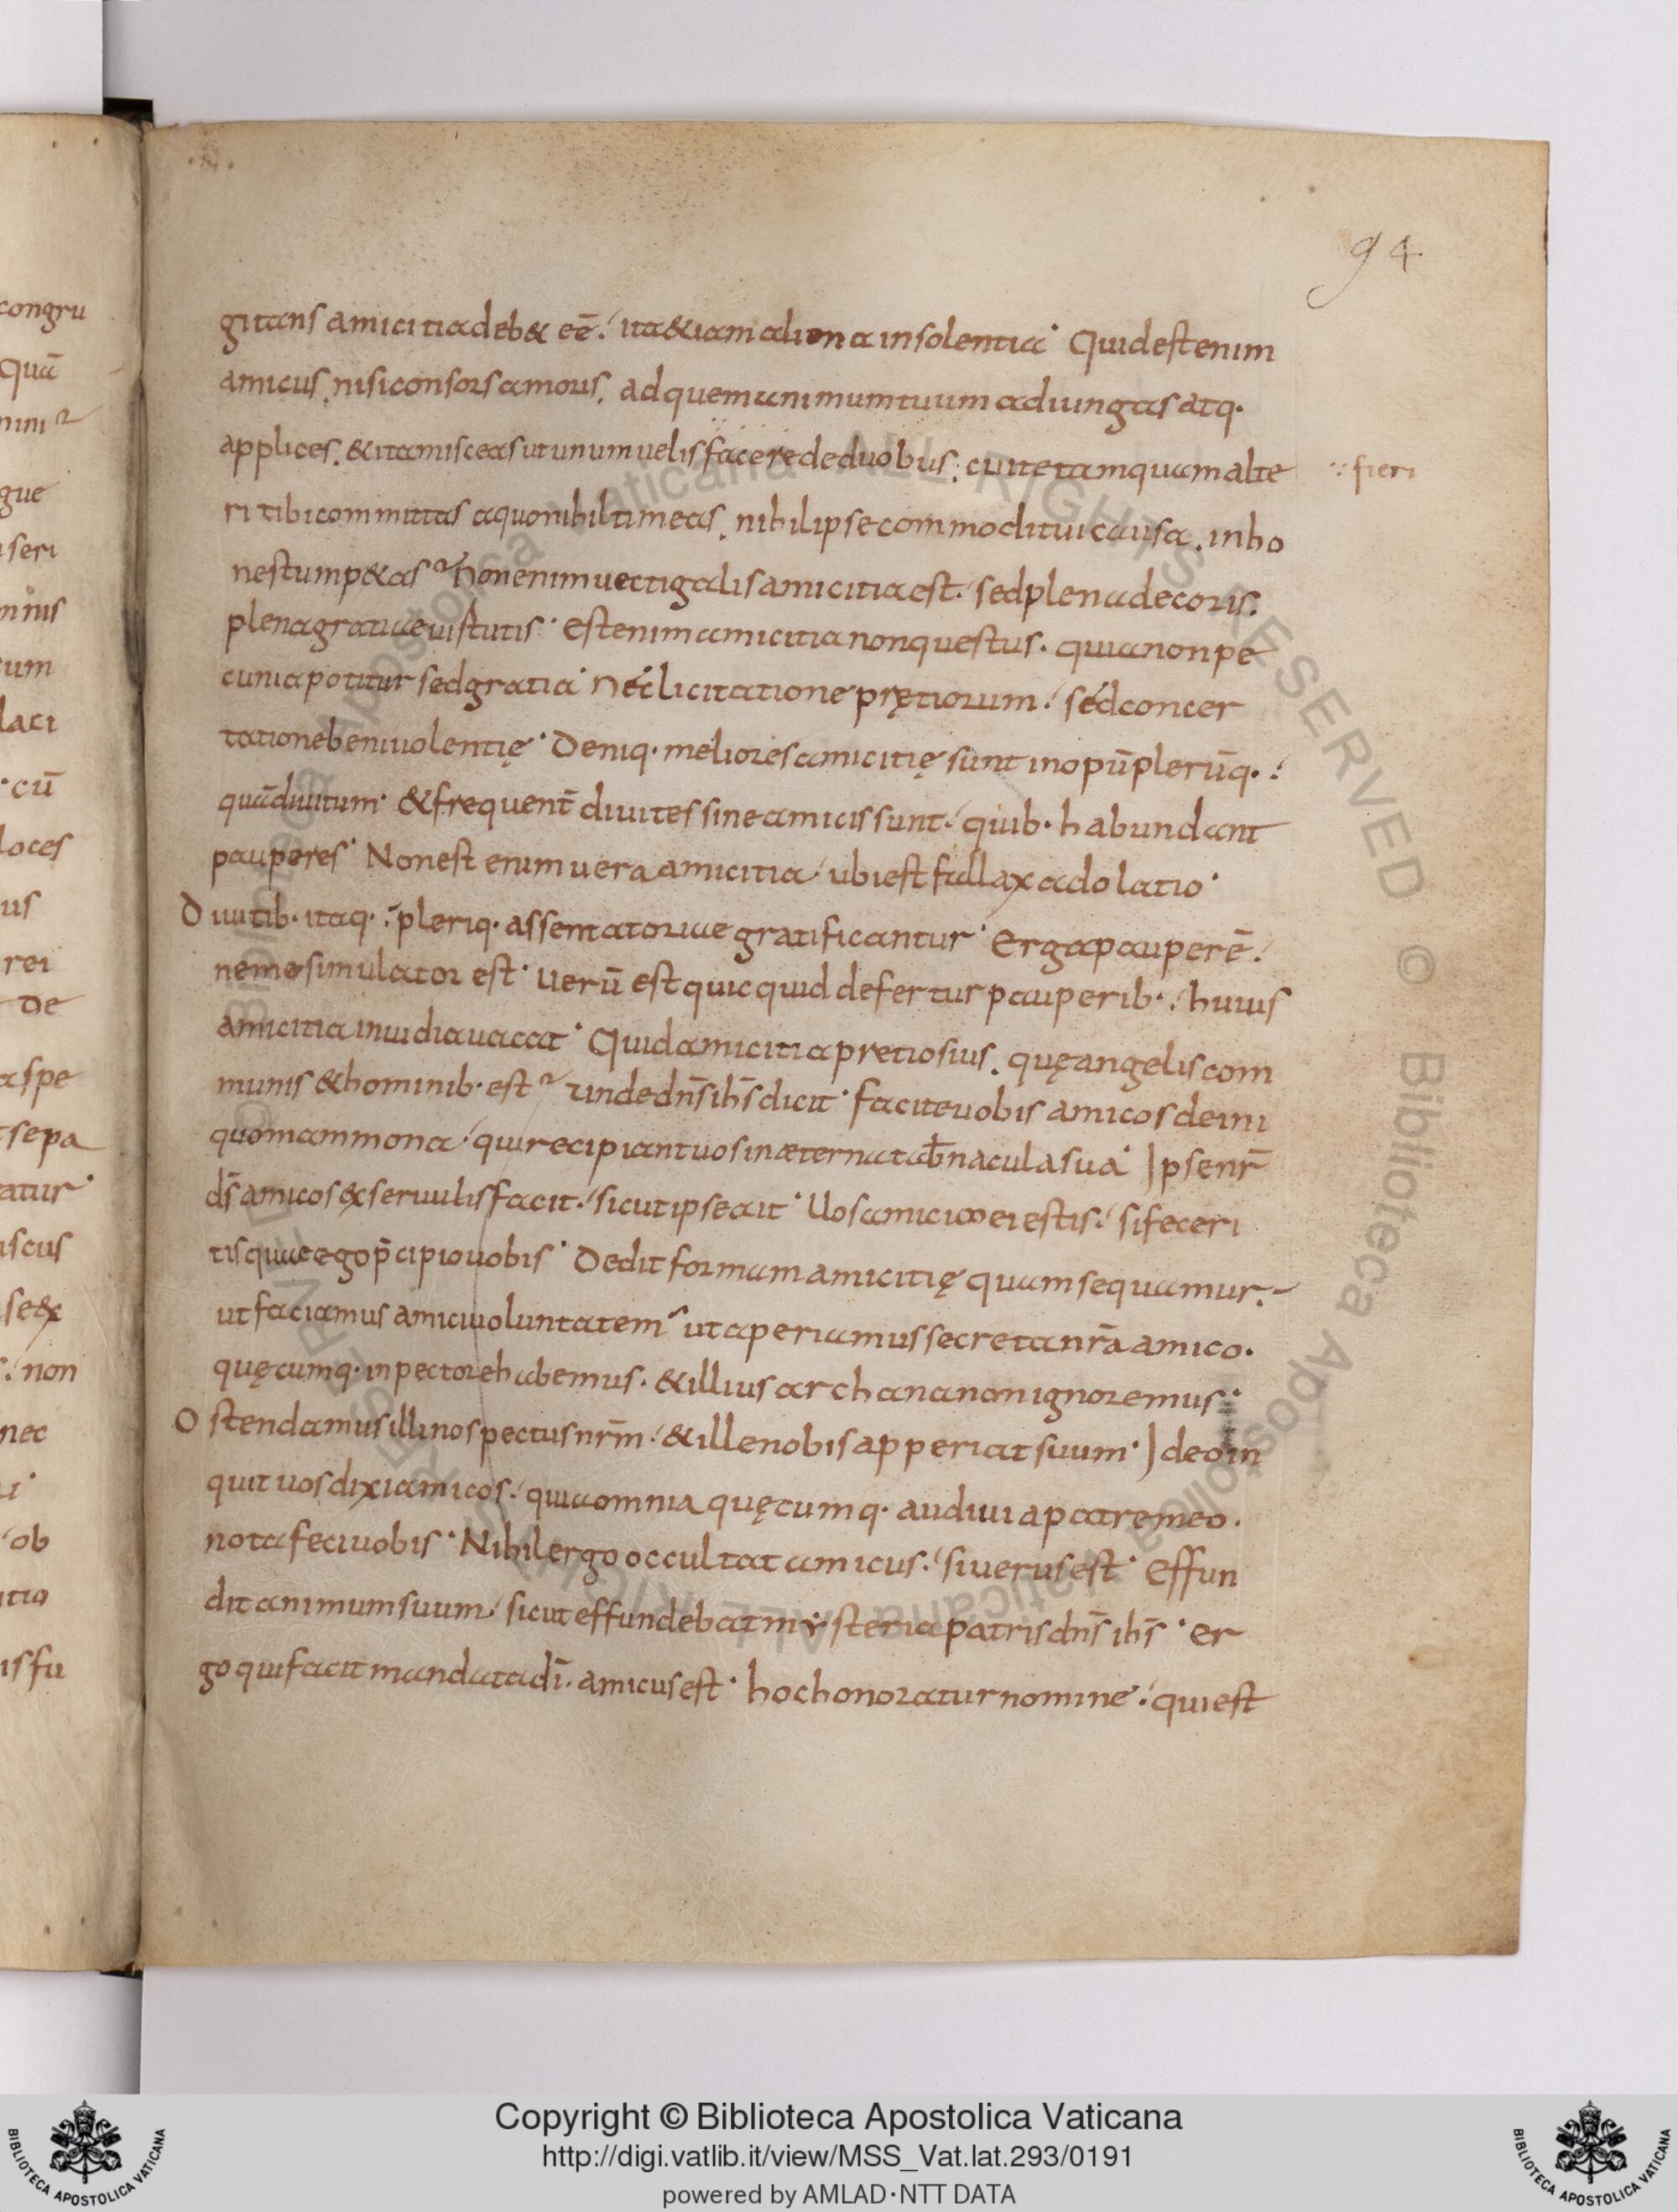 94
gitans amicitia deb& eē. ita &iam aliena insolentia. Quid est enim
amicus. nisi consors amoris. ad quem animum tuum adiungas atq·
applices. & ita misceas ut unum uelis facere de duobus. cui te tamquam alte
fieri
ri tibi committas a quo nihil timeas. nihil ipse commodi tui causa. inho
nestum p&as? Non enim uectigalis amicitia est. sed plena decoris.
plena gratiae uistutis. Est enim amicitia non questus. quia non pe
cunia potitur sed gratia. Nec licitatione prętiorum. sed concer
tatione beniuolentię. Deniq· meliores amicitię sunt inopū plerūq·
quā diuitum. & frequent̄ diuites sine amicis sunt. quib· habundant
pauperes. Non est enim uera amicitia. ubi est fallax adolatio.
Diuitib· itaq· pleriq· assentatoriae gratificantur. Erga pauperē.
nemo simulator est. Uerū est quicquid defertur pauperib·. huius
amicitia inuidia uacat. Quid amicitia pretiosius. quę angelis com
munis & hominib· est? Unde dn̄s ihs̄ dicit. facite uobis amicos de ini
quo mammona. qui recipiant uos in æterna tab̄nacula sua. Ipse nr̄
ds̄ amicos ex seruulis facit. sicut ipse ait. Uos amici mei estis. si feceri
tis quae ego p̄cipio uobis. Dedit formam amicitię quam sequamur.
ut faciamus amici uoluntatem. ut aperiamus secreta nr̄a amico.
quęcumq· in pectore habemus. & illius archana non ignoremus.
Ostendamus illi nos pectus nrm̄. & ille nobis apperiat suum. Ideo in
quit uos dixi amicos. quia omnia quęcumq· audiui a patre meo.
nota feci uobis. Nihil ergo occultat amicus. si uerus est. Effun
dit animum suum. sicut effundebat mysteria patris dn̄s ihs̄. Er
go qui facit mandata dī. amicus est. hoc honoratur nomine. qui est
congru
Quā
gue
seri
um
laci
cū
loces
us
rei
De
aspe
sepa
atur
iscus
se&
non
nec
ob
itio
is fu
Biblioteca Apostolica Vaticana ALL RIGHTS RESERVED ©
Copyright © Biblioteca Apostolica Vaticana
http://digi.vatlib.it/view/MSS_Vat.lat.293/0191
powered by AMLAD·NTT DATA
BIBLIOTECA APOSTOLICA VATICANA
BIBLIOTECA APOSTOLICA VATICANA